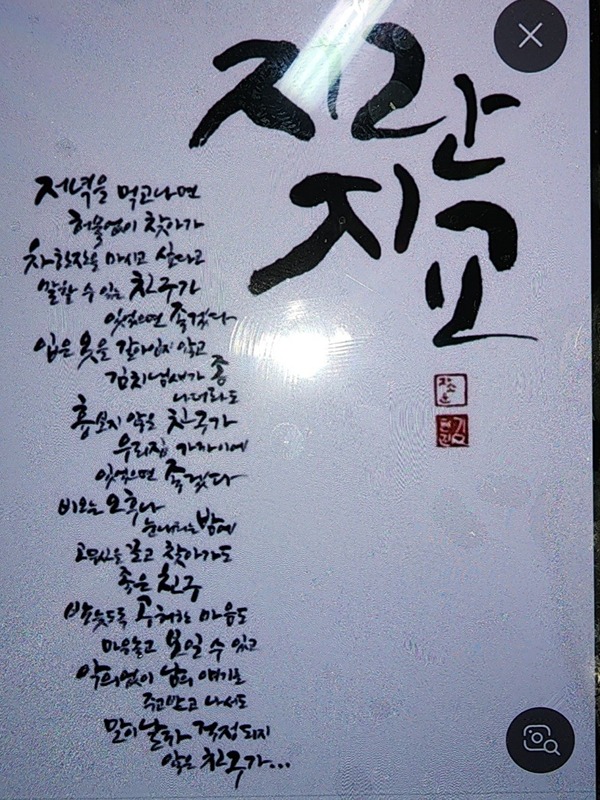 지란
지교
저녁을 먹고나면
허물없이 찾아가
차한잔을 마시고 싶다고
말할 수 있는 친구가
있었으면 좋겠다
입은 옷을 갈아입지 않고
김치냄새가 좀
나더라도
흉보지 않을 친구가
우리집 가까이에
있었으면 좋겠다
비오는 오후나
눈내리는 밤에
고무신을 끌고 찾아가도
좋은 친구
밤늦도록 공허한 마음도
마음놓고 보일 수 있고
악의없이 남의 얘기를
주고받고 나서도
말이 날까 걱정되지
않은 친구가...